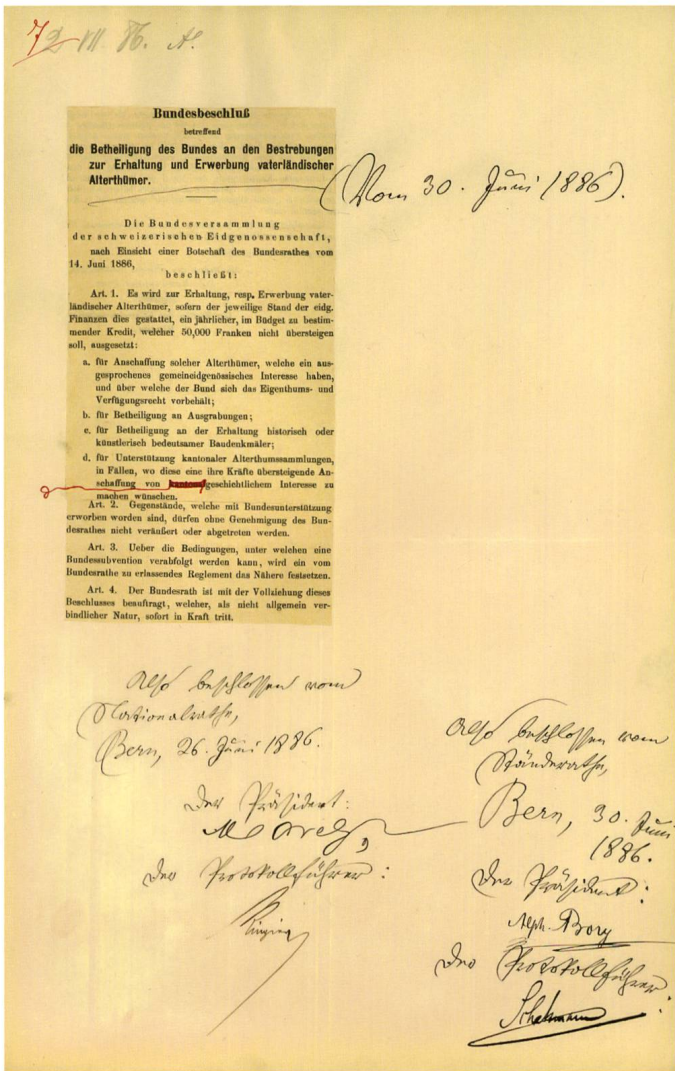 VII. 86. A.
Bundesbeschluß
betreffend
die Betheiligung des Bundes an den Bestrebungen
zur Erhaltung und Erwerbung vaterländischer
Alterthümer.
(Vom 30. Juni 1886).
Die Bundesversammlung
der schweizerischen Eidgenossenschaft,
nach Einsicht einer Botschaft des Bundesrathes vom
14. Juni 1886,
beschließt:
Art. 1. Es wird zur Erhaltung, resp. Erwerbung vater-
ländischer Alterthümer, sofern der jeweilige Stand der eidg.
Finanzen dies gestattet, ein jährlicher, im Büdget zu bestim-
mender Kredit, welcher 50,000 Franken nicht übersteigen
soll, ausgesetzt:
a. für Anschaffung solcher Alterthümer, welche ein aus-
gesprochenes gemeineidgenössisches Interesse haben,
und über welche der Bund sich das Eigenthums- und
Verfügungsrecht vorbehält;
b. für Betheiligung an Ausgrabungen;
c. für Betheiligung an der Erhaltung historisch oder
künstlerisch bedeutsamer Baudenkmäler;
d. für Unterstützung kantonaler Alterthumssammlungen,
in Fällen, wo diese eine ihre Kräfte übersteigende An-
schaffung von geschichtlichem Interesse zu
machen wünschen.
Art. 2. Gegenstände, welche mit Bundesunterstützung
erworben worden sind, dürfen ohne Genehmigung des Bun-
desrathes nicht veräußert oder abgetreten werden.
Art. 3. Ueber die Bedingungen, unter welchen eine
Bundessubvention verabfolgt werden kann, wird ein vom
Bundesrathe zu erlassendes Reglement das Nähere festsetzen.
Art. 4. Der Bundesrath ist mit der Vollziehung dieses
Beschlusses beauftragt, welcher, als nicht allgemein ver-
bindlicher Natur, sofort in Kraft tritt.
Also beschlossen vom
Nationalrathe,
Bern, 26. Juni 1886.
Der Präsident:
Morel,
Der Protokollführer:
Ringier
Also beschlossen vom
Ständerathe,
Bern, 30. Juni
1886.
Der Präsident:
Alph. Bory
Der Protokollführer:
Schatzmann